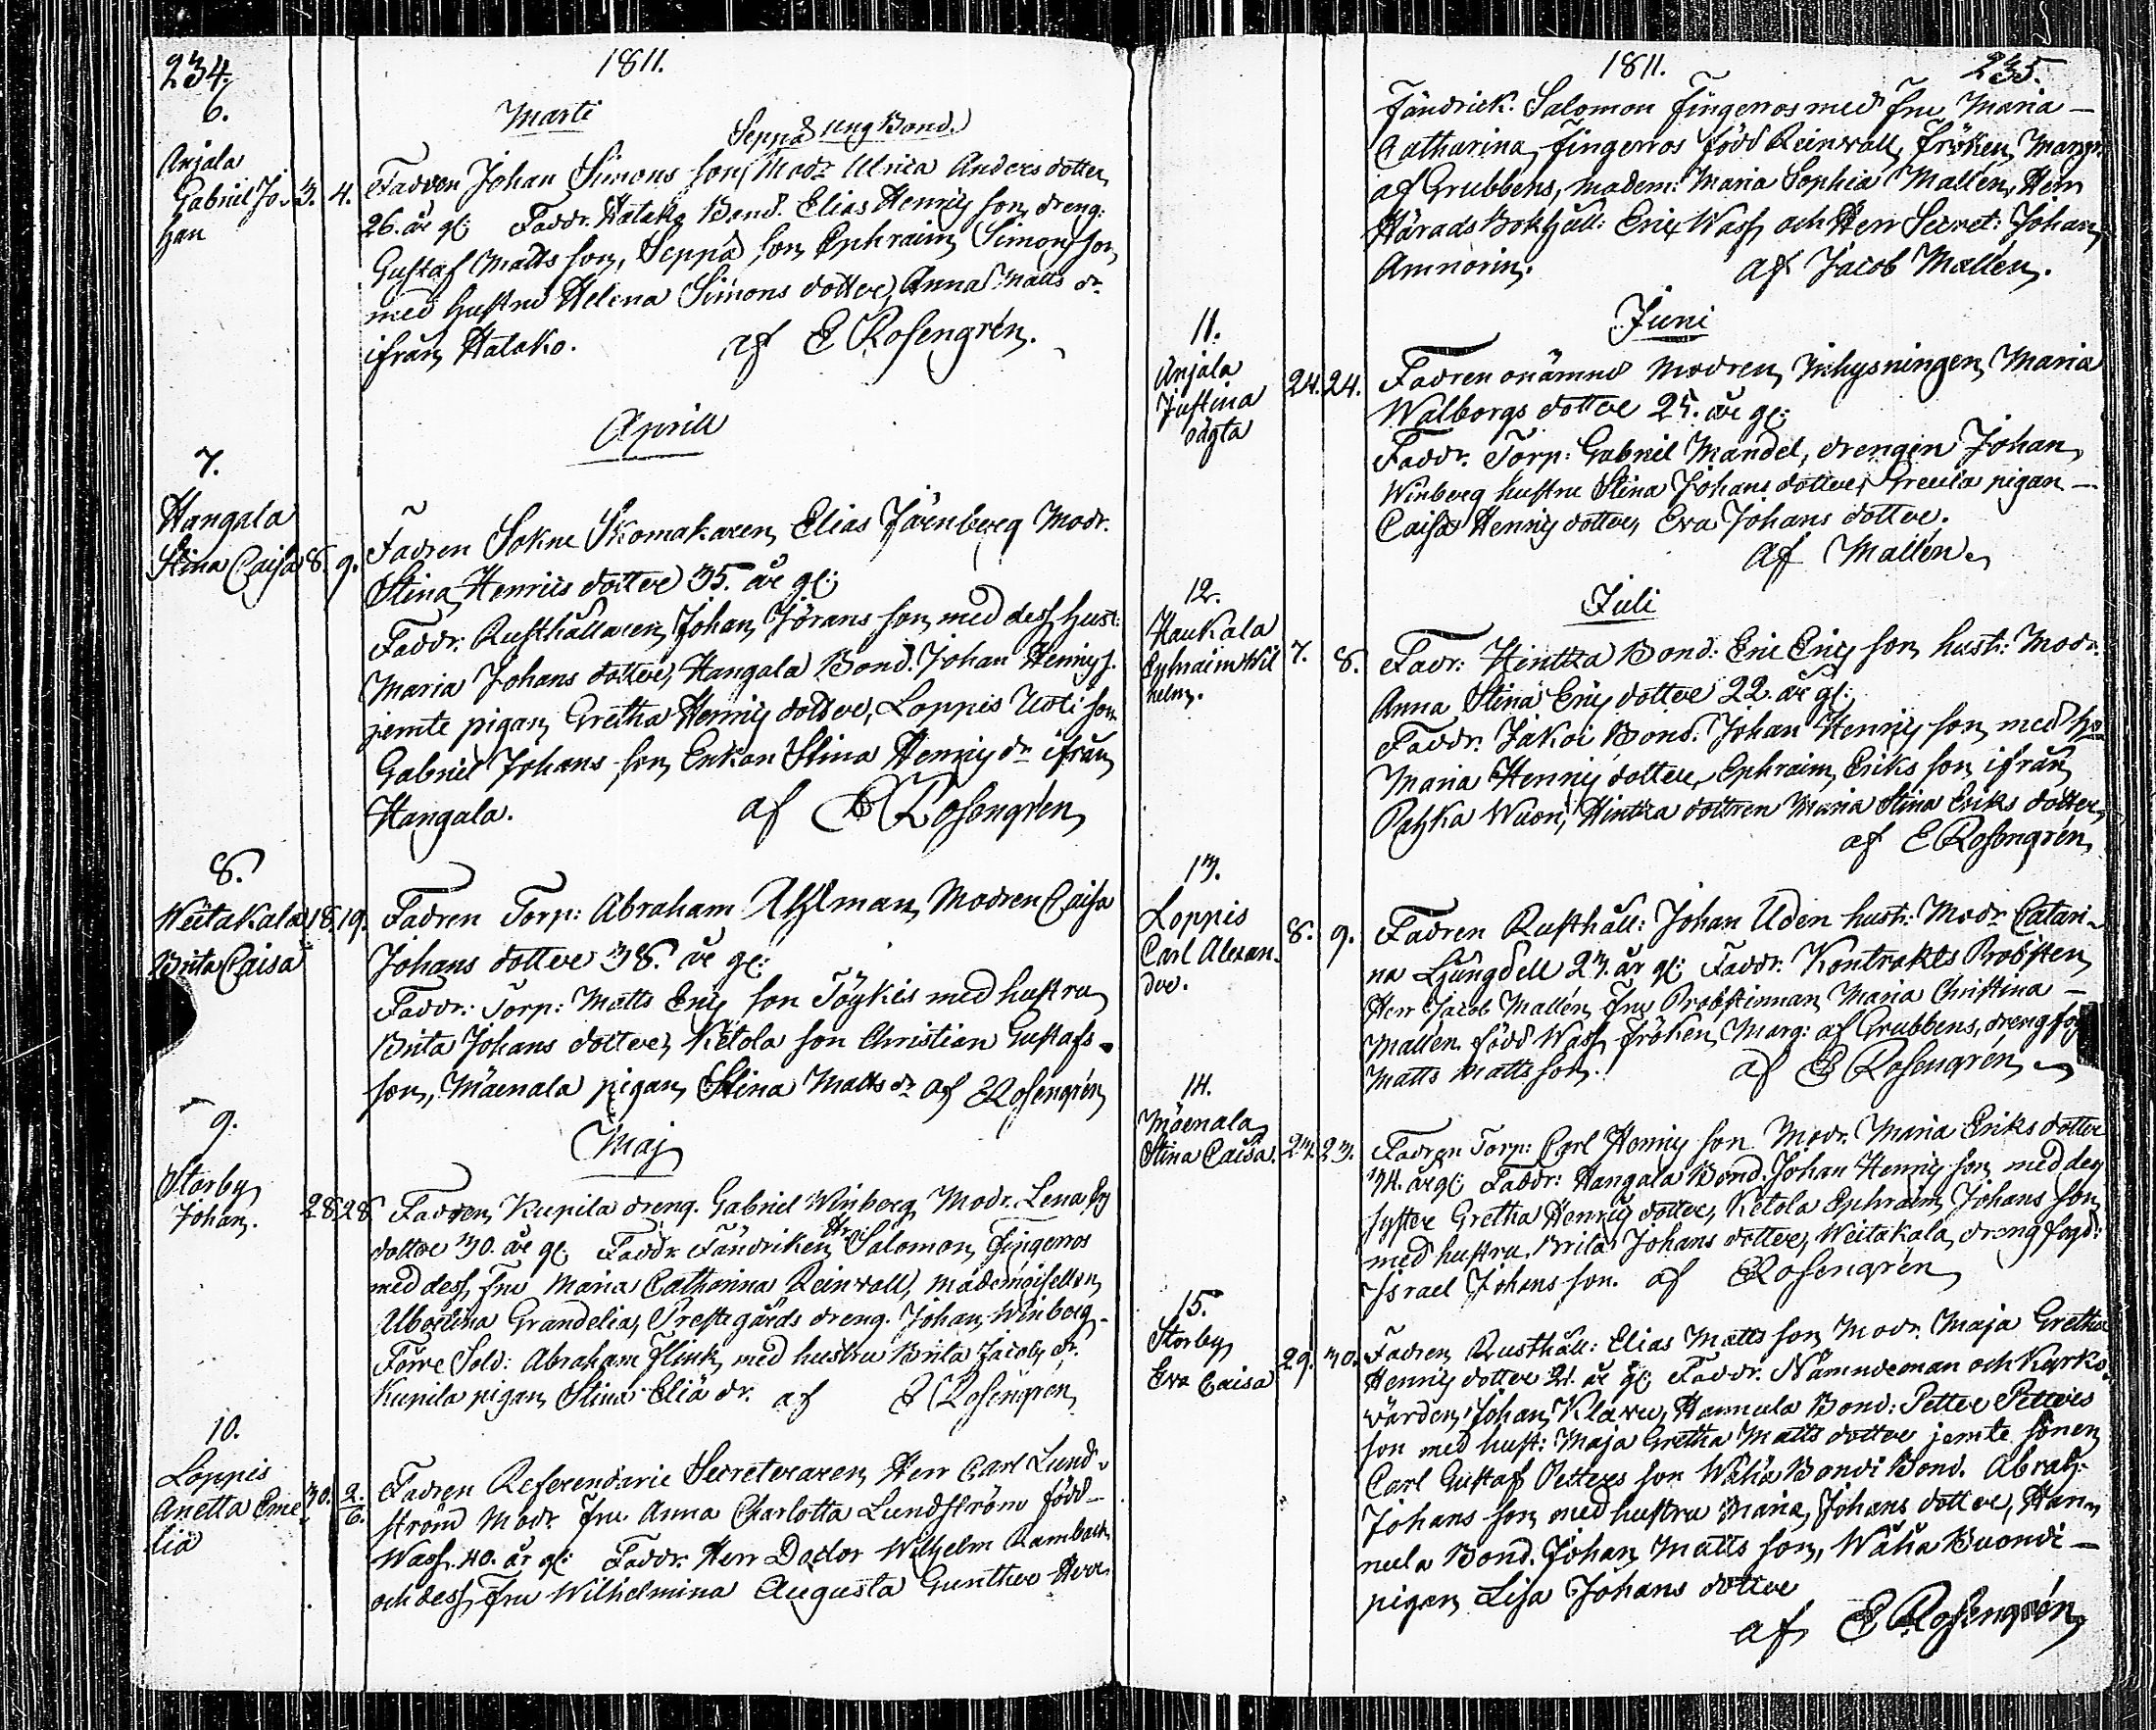 234.
1811.
Marti
6.
Anjala
Gabriel Jo-
han
3. 4.
Seppä ung Bond.
Fadren Johan Simons son, Modr Ulrica Anders dotter
26. år gl: Faddr. Hatako Bond. Elias Henrics son, dreng:
Gustaf Matts son, Seppä son Ephraim Simons son
med hustru Helena Simons dotter, Anna Matts dr
ifrån Hatako. af E Rosengrén.
Aprill
7.
Hangala
Stina Caisa
8. 9.
Fadren Sokne Skomakaren Elias Järnberg Modr.
Stina Henrics dotter 35. år gl:
Faddr. Rusthållaren Johan Jörans son med dess hust:
Maria Johans dotter, Hangala Bond. Johan Henrics s.
jemte pigan Gretha Henrics dotter, Loppis Uoti son
Gabriel Johans son, Enkan Stina Henrics dr ifrån
Hangala. af E Rosengrén
8.
Weitakala
Brita Caisa
18. 19.
Fadren Torp: Abraham Ahlman, Modren Caisa
Johans dotter 38. år gl:
Faddr: Torp: Matts Erics son Töykis med hustru
Brita Johans dotter, Ketola son Christian Gustafs-
son, Mäenala pigan Stina Matts dr af E Rosengrén
Maj
9.
Storby
Johan.
28. 28.
Fadren, Kupila dreng. Gabriel Winberg Modr. Lena
dotter 30. år gl. Faddr. Fändriken Hr Salomon Fingerroos
med dess fru Maria Catharina Reinwall, mademoisellen
Albertina Grandelia, Prestegårds dreng. Johan Winberg
Förre Sold: Abraham Flink med hustru Brita Jacobs dr.
Kupila pigan Stina Eliä dr. af E Rosengrén
10.
Loppis
Anetta Eme
lia
30. 2./6.
Fadren Referendarie Secreteraren Herr Carl Lund-
ström Modr. fru Anna Charlotta Lundström född
Wass. 40. år gl: Faddr. Herr Doctor Wilhelm Rambach
och dess fru Wilhelmina Augusta Gunther Herr
1811. 235.
Fändrick. Salomon Fingerros med fru Maria
Catharina Fingerros född Reinwall, Fröken Margr.
af Grubbens, madem: Maria Sophia Mallén, Herr
Härads Bokhåll: Eric Wass och Herr Secret: Johan
Amnorin. af Jacob Mallén.
Juni
11.
Anjala
Justina
oägta
24. 24.
Fadren onämnd Modren Inhysningen Maria
Walborgs dotter 25. år gl:
Faddr. Torp: Gabriel Mandel, drengen Johan
Winberg hustru Stina Johans dotter, Precila pigan
Caisa Henrics dotter, Eva Johans dotter.
af Mallén
Juli
12.
Haukala
Ephraim Wil
helm.
7. 8.
Fadr: Hintka Bond: Eric Erics son, hust: Modr.
Anna Stina Erics dotter 22. år gl:
Faddr. Jakoi Bond. Johan Henrics son med
Maria Henrics dotter, Ephraim Eriks son ifrån
Pahka Wuori, Hintka dottren Maria Stina Eriks dotter
af E Rosengrén
13.
Loppis
Carl Alexan-
der.
8. 9.
Fadren Rusthåll: Johan Udén hust: Modr. Catari-
na Ljungdell 23. år gl: Faddr. Kontrakts Probsten
Herr Jacob Mallén, Fru Probstinnan Maria Christina
Mallén född Wass, Fröken Marg: af Grubbens, dreng fog
Matts Matts son. af E Rosengrén
14.
Mäenala
Stina Caisa.
23. 23.
Fadren Torp: Carl Henrics son Modr. Maria Eriks dotter
34. år gl: Faddr: Hangala Bond. Johan Henrics son med des
syster Gretha Henrics dotter, Ketola Ephraim Johans son
med hustru Brita Johans dotter, Weitakala dreng fogd:
Israel Johans son. af E Rosengrén
15.
Storby
Eva Caisa
29. 30.
Fadren Rusthåll: Elias Matts son, Modr. Maja Gretha
Henrics dotter 21. år gl: Faddr. Nämndeman och Kyrko
värden, Johan Klaru, Hannula Bond: Petter Petters
son med hust: Maja Gretha Matts dotter jemte sonen
Carl Gustaf Petters son Wähä Bondi Bond. Abrah:
Johans son med hustru Maria Johans dotter, Han-
nula Bond. Johan Matts son, Wähä Buondi
pigan Lisa Johans dotter
af E Rosengrén